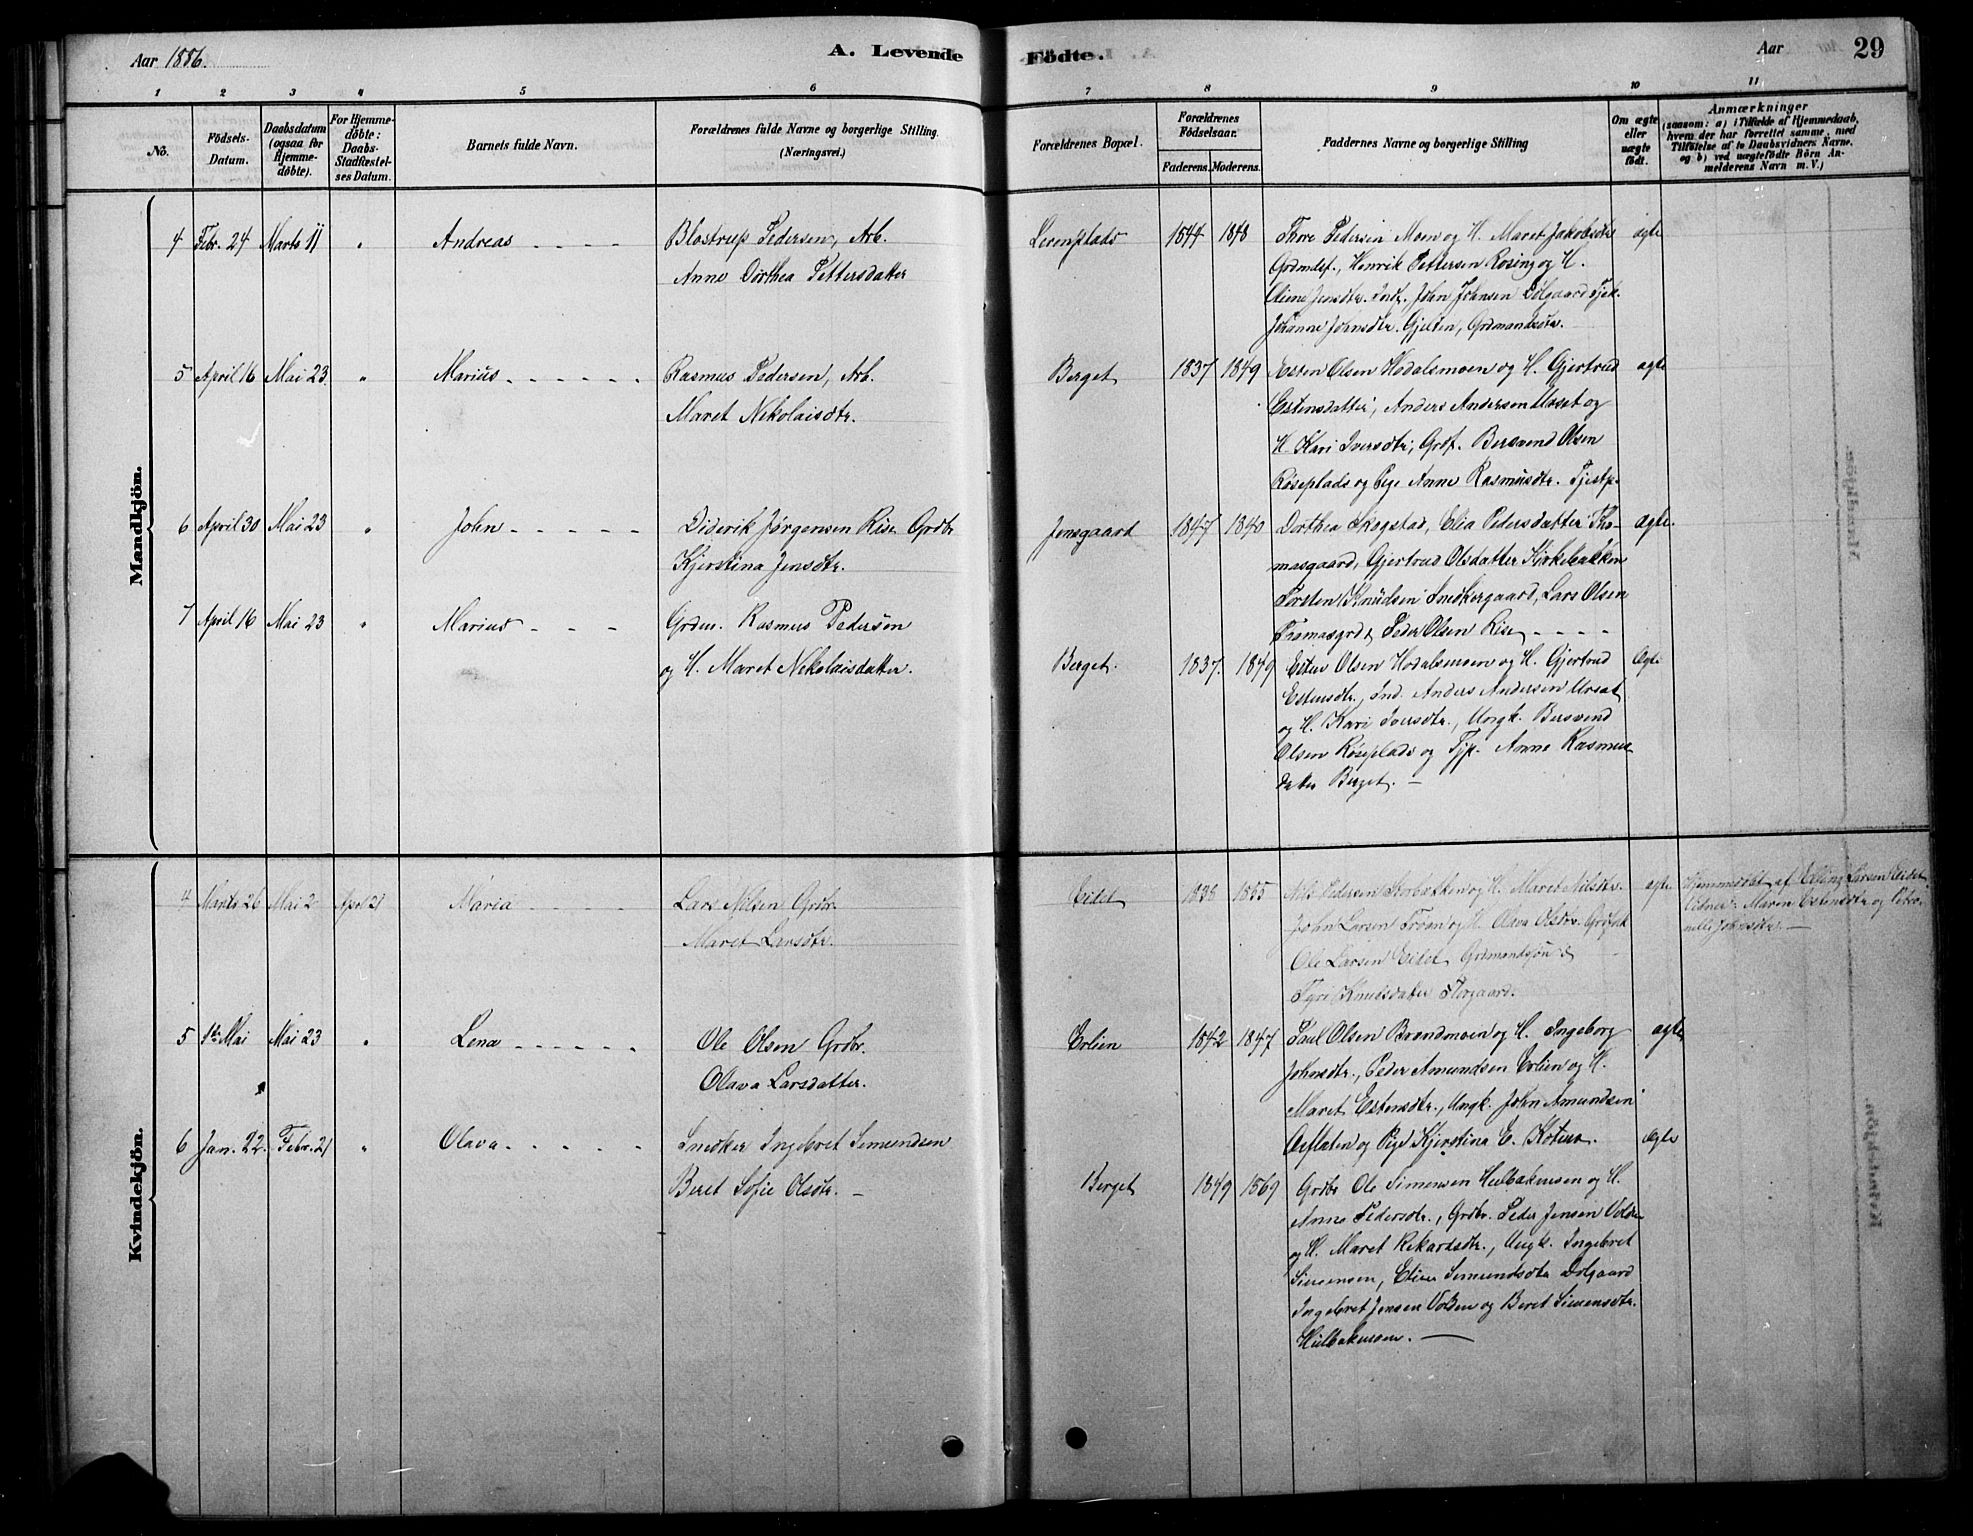 Aar 1886.
A. Levende Födte.
Aar
29
1 2 3 4 5 6 7 8 9 10 11
No.
Födsels-Datum.
Daabsdatum (ogsaa för Hjemme-döbte).
For Hjemme-döbte: Daabs-Stadfæstel-ses Datum.
Barnets fulde Navn.
Forældrenes fulde Navne og borgerlige Stilling.
(Næringsvei.)
Forældrenes Bopæl.
Forældrenes Födselsaar.
Faderens. Moderens.
Faddernes Navne og borgerlige Stilling
Om ægte eller uægte födt.
Anmærkninger
(saasom: a) i Tilfælde af Hjemmedaab,
hvem der har forrettet samme, med
Tilföielse af to Daabsvidners Navne,
og b) ved uægtefödte Börn An-
melderens Navn m. V.)
Mandkjön.
4 Febr. 24 Marts 11 " Andreas
Blostrup Pedersen, Arb.
Anne Dorthea Pettersdatter
Lerenplads 1844 1848
Thore Pedersen Moen og H. Maret Jakobsdtr
Grdmdsf., Henrik Pettersen Rosing og H.
Jensdtr. Indr. John Johnsen Dölgaard Tjek.
Johanne Johnsdtr. Gjelten, Grdmandsdtr.
ægte
5 April 16 Mai 23 " Marius
Rasmus Pedersen, Arb.
Maret Nekolaisdtr.
Berget 1837 1849
Esten Olsen Hodalsmoen og H. Gjertrud
Estensdatter, Anders Andersen Urset og
H. Kari Iversdtr, Grdf. Bersvend Olsen
Röseplads og Pige Anne Rasmusdtr. Tjestp.
ægte
6 April 30 Mai 23 " John
Diderik Jörgensen Rise Grdbr
Kjerstina Jensdtr.
Jonsgaard 1847 1840
Dorthea Skogstad, Elia Pedersdatter Tho-
masgaard, Gjertrud Olsdatter Kirkebakken
Torsten Knudsen Snedkergaard, Lars Olsen
Tromasgrd & Peder Olsen Rise
ægte.
7 April 16 Mai 23 " Marius
Grdm. Rasmus Pedersen
og H. Maret Nekolaisdatter.
Berget. 1837. 1849
Esten Olsen Hodalsmoen og H. Gjertrud
Estensdtr., Ind. Anders Andersen Urset
og H. Kari Iversdtr., Ungk. Bersvend
Olsen Röseplads og Tjp. Anne Rasmus
datter Berget. —
Ægte
Kvindekjön.
4 Marts 26 Mai 2 April 21 Maria
Lars Nilsen Grdbr.
Maret Larsdtr.
Eidet 1838 1855
Nils Pedersen Storbækken og H. Maret Nilsdtr.
John Larsen Troen og H. Olava Olsdtr. Grdfolk
Ole Larsen Eidet Grdmandsön &
Tyri Knutsdatter Torgaard.
ægte
Hjemmedöbt af Elling Larsen Eidet.
Vidner: Maren Estensdtr og Petro-
nelle Johnsdtr. —
5 1ste Mai Mai 23 " Lena
Ole Olsen Grdbr.
Olava Larsdatter.
Erlien 1842 1847
Paul Olsen Brandmoen og H. Ingeborg
Johnsdtr., Peder Amundsen Erlien og H.
Maret Estensdtr., Ungk. John Amundsen
og Pige Kjerstina E.
ægte
6 Jan. 22. Febr. 21 " Olava
Snedker Ingebret Simundsen
Beret Sofie Olsdtr. —
Berget 1849 1869
Grdbr Ole Simensen Hulbakmoen og H.
Anne Pedersdtr., Grdbr. Peder Jensen Volden
og H. Maret Rikardsdtr., Ungk. Ingebret
Simensen, Eline Simundsdtr Dölgaard
Ingebret Jensen Volden og Beret Simensdtr.
Hulbakmoen. —
Ægte